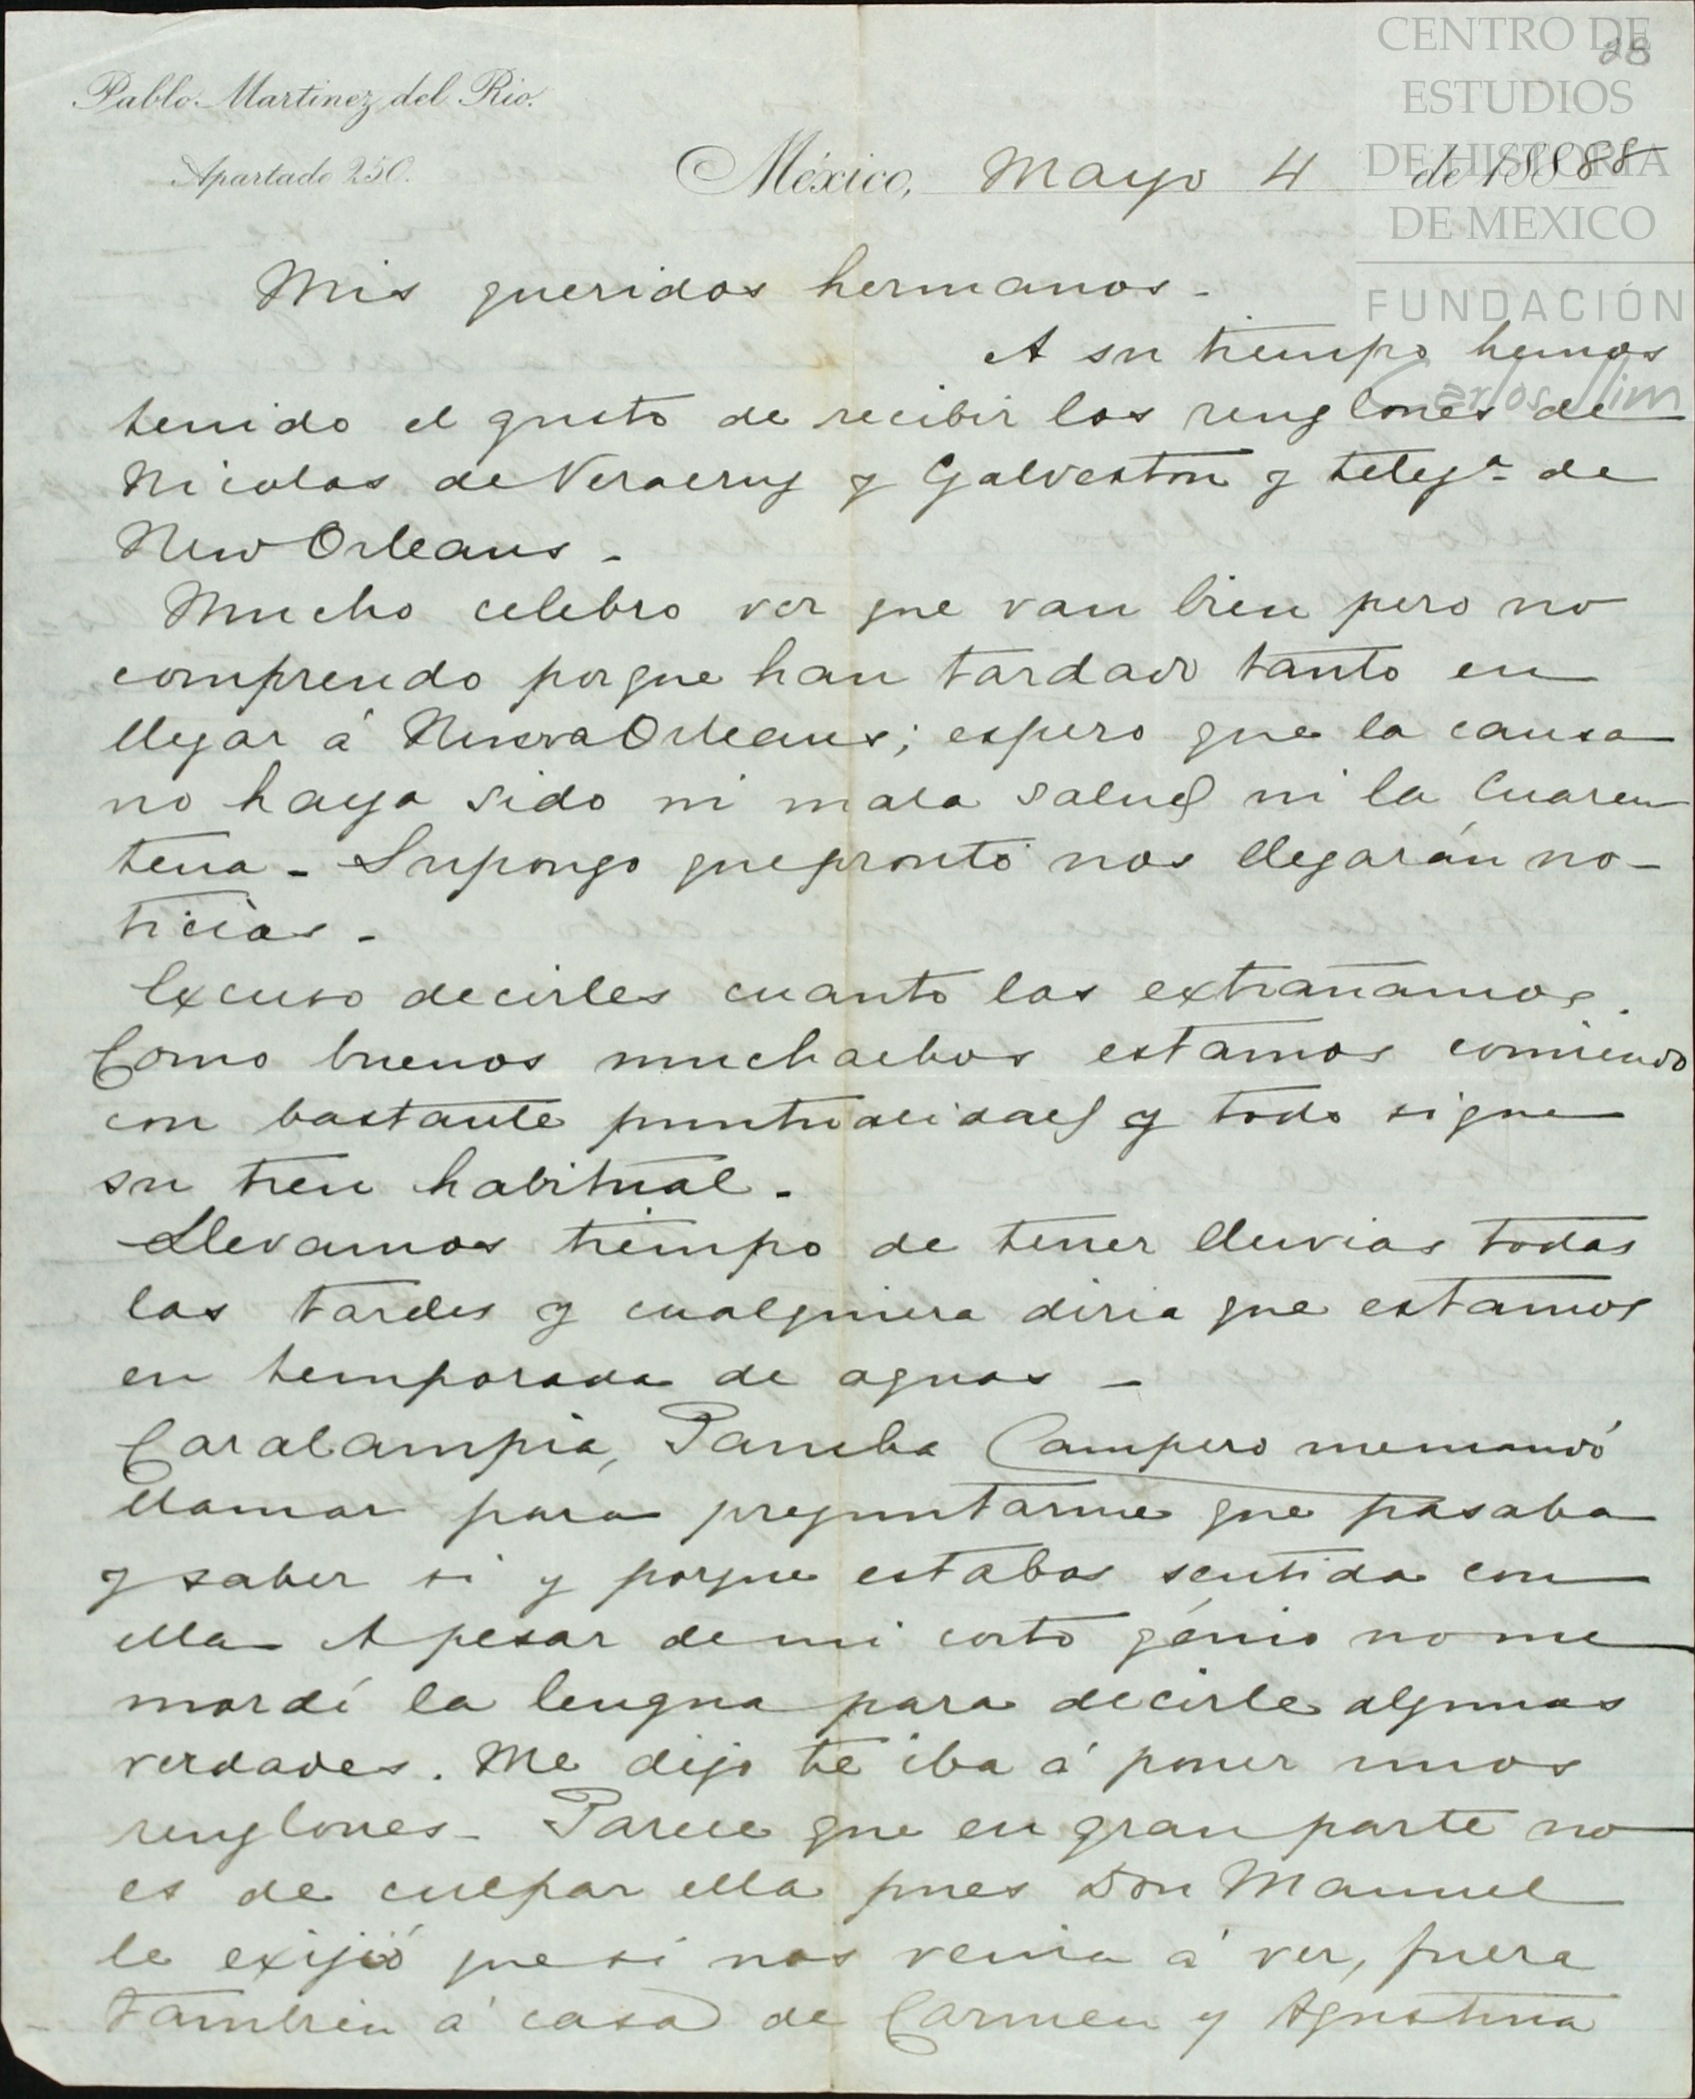 CENTRO DE
ESTUDIOS
DE HISTORIA
DE MEXICO
FUNDACIÓN
Carlos Slim
28
Pablo Martinez del Rio.
Apartado 250.
México, Mayo 4 de 1888
Mis queridos hermanos -
A su tiempo hemos
tenido el gusto de recibir los renglones de
Nicolas de Veracruz y Galveston y telegª de
New Orleans -
Mucho celebro ver que van bien pero no
comprendo porque han tardado tanto en
llegar á Nueva Orleans; espero que la causa
no haya sido ni mala salud ni la Cuaren
tena - Supongo que pronto nos llegarán no-
ticias -
Excuso decirles cuanto los extrañamos.
Como buenos muchachos estamos comiendo
con bastante puntualidad y todo sigue
su tren habitual -
Llevamos tiempo de tener lluvias todas
las tardes y cualquiera diria que estamos
en temporada de aguas -
Caralampia, Pancha Campero me mandó
llamar para preguntarme que pasaba
y saber si y porque estabas sentida con
ella A pesar de mi corto génio no me
mordí la lengua para decirle algunas
verdades. Me dijo te iba á poner unos
renglones - Parece que en gran parte no
es de culpar ella pues Don Manuel
le exijió que si nos venia á ver, fuera
tambien á casa de Carmen y Agustina